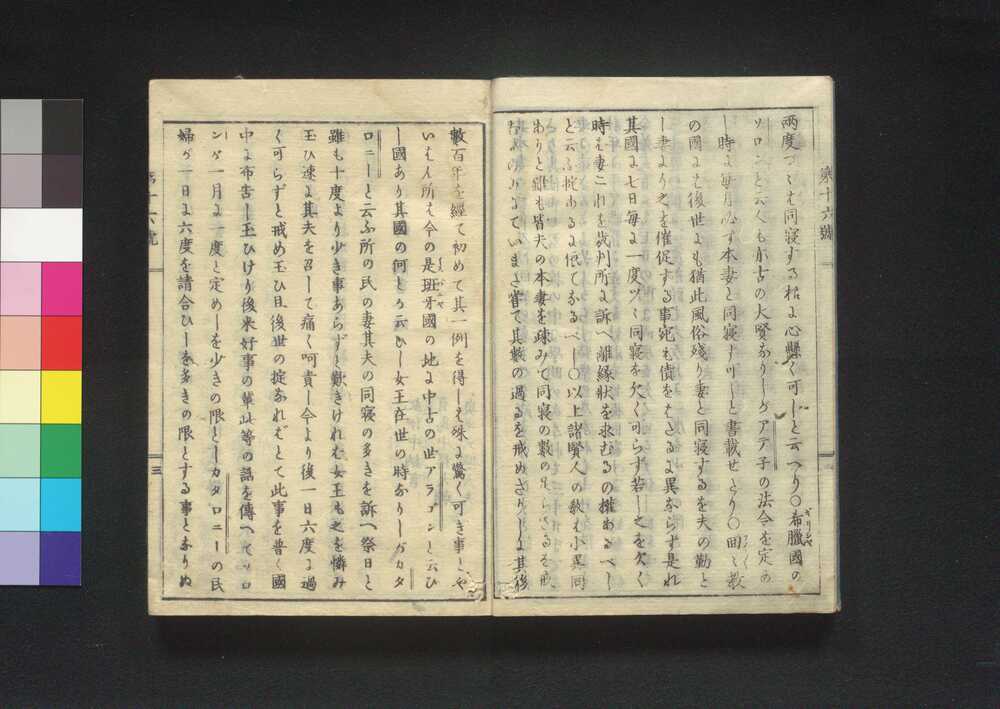 第十六號
兩度づゝは同寝する樣に心懸く可しと云へり○希臘國の
ギリシヤ
ソロンと云へるも亦古の大賢なりしがアテ子の法令を定め
し時は毎月必ず本妻と同寝す可しと書載せたり○回々教
の國にも後世にも猶此風俗殘り妻と同寝するを夫の勤と
し妻より之を催促する事宛も債をはたるに異ならず是れ
其國に七日毎に一度ツヽ同寝を欠く可らず若し之を欠く
時は妻これを裁判所に訴へ離縁状を求むるの權あるべし
と云ふ掟あるに依てなるべし○以上諸賢人の教も小異同
ありと雖も皆夫の本妻を疎みて同寝の數の足らざるを戒
のみにていまだ嘗て其數の過るを戒めざりしに其後
數百年を經て初めて其一例を得しは殊に驚く可き事とや
いはん所は今の是班牙國の地に中古の世アラゴンと云ひ
し國あり其國の何とか云ひし女王在世の時なりしがカタ
ロニーと云ふ所の民の妻其夫の同寝の多きを訴へ祭日と
雖も十度より少き事あらずと歎きければ女王も之を憐み
玉ひ速に其夫を召して痛く呵責し今より後一日六度に過
く可らずと戒め玉ひ且後世の掟なればとて此事を普く國
中に布告し玉ひけり後來好事の輩此等の話を傳へてソロ
ンが一月に一度と定めしを少きの限としカタロニーの民
婦が一日に六度を請合ひしを多きの限とする事となりぬ
第十六號
三